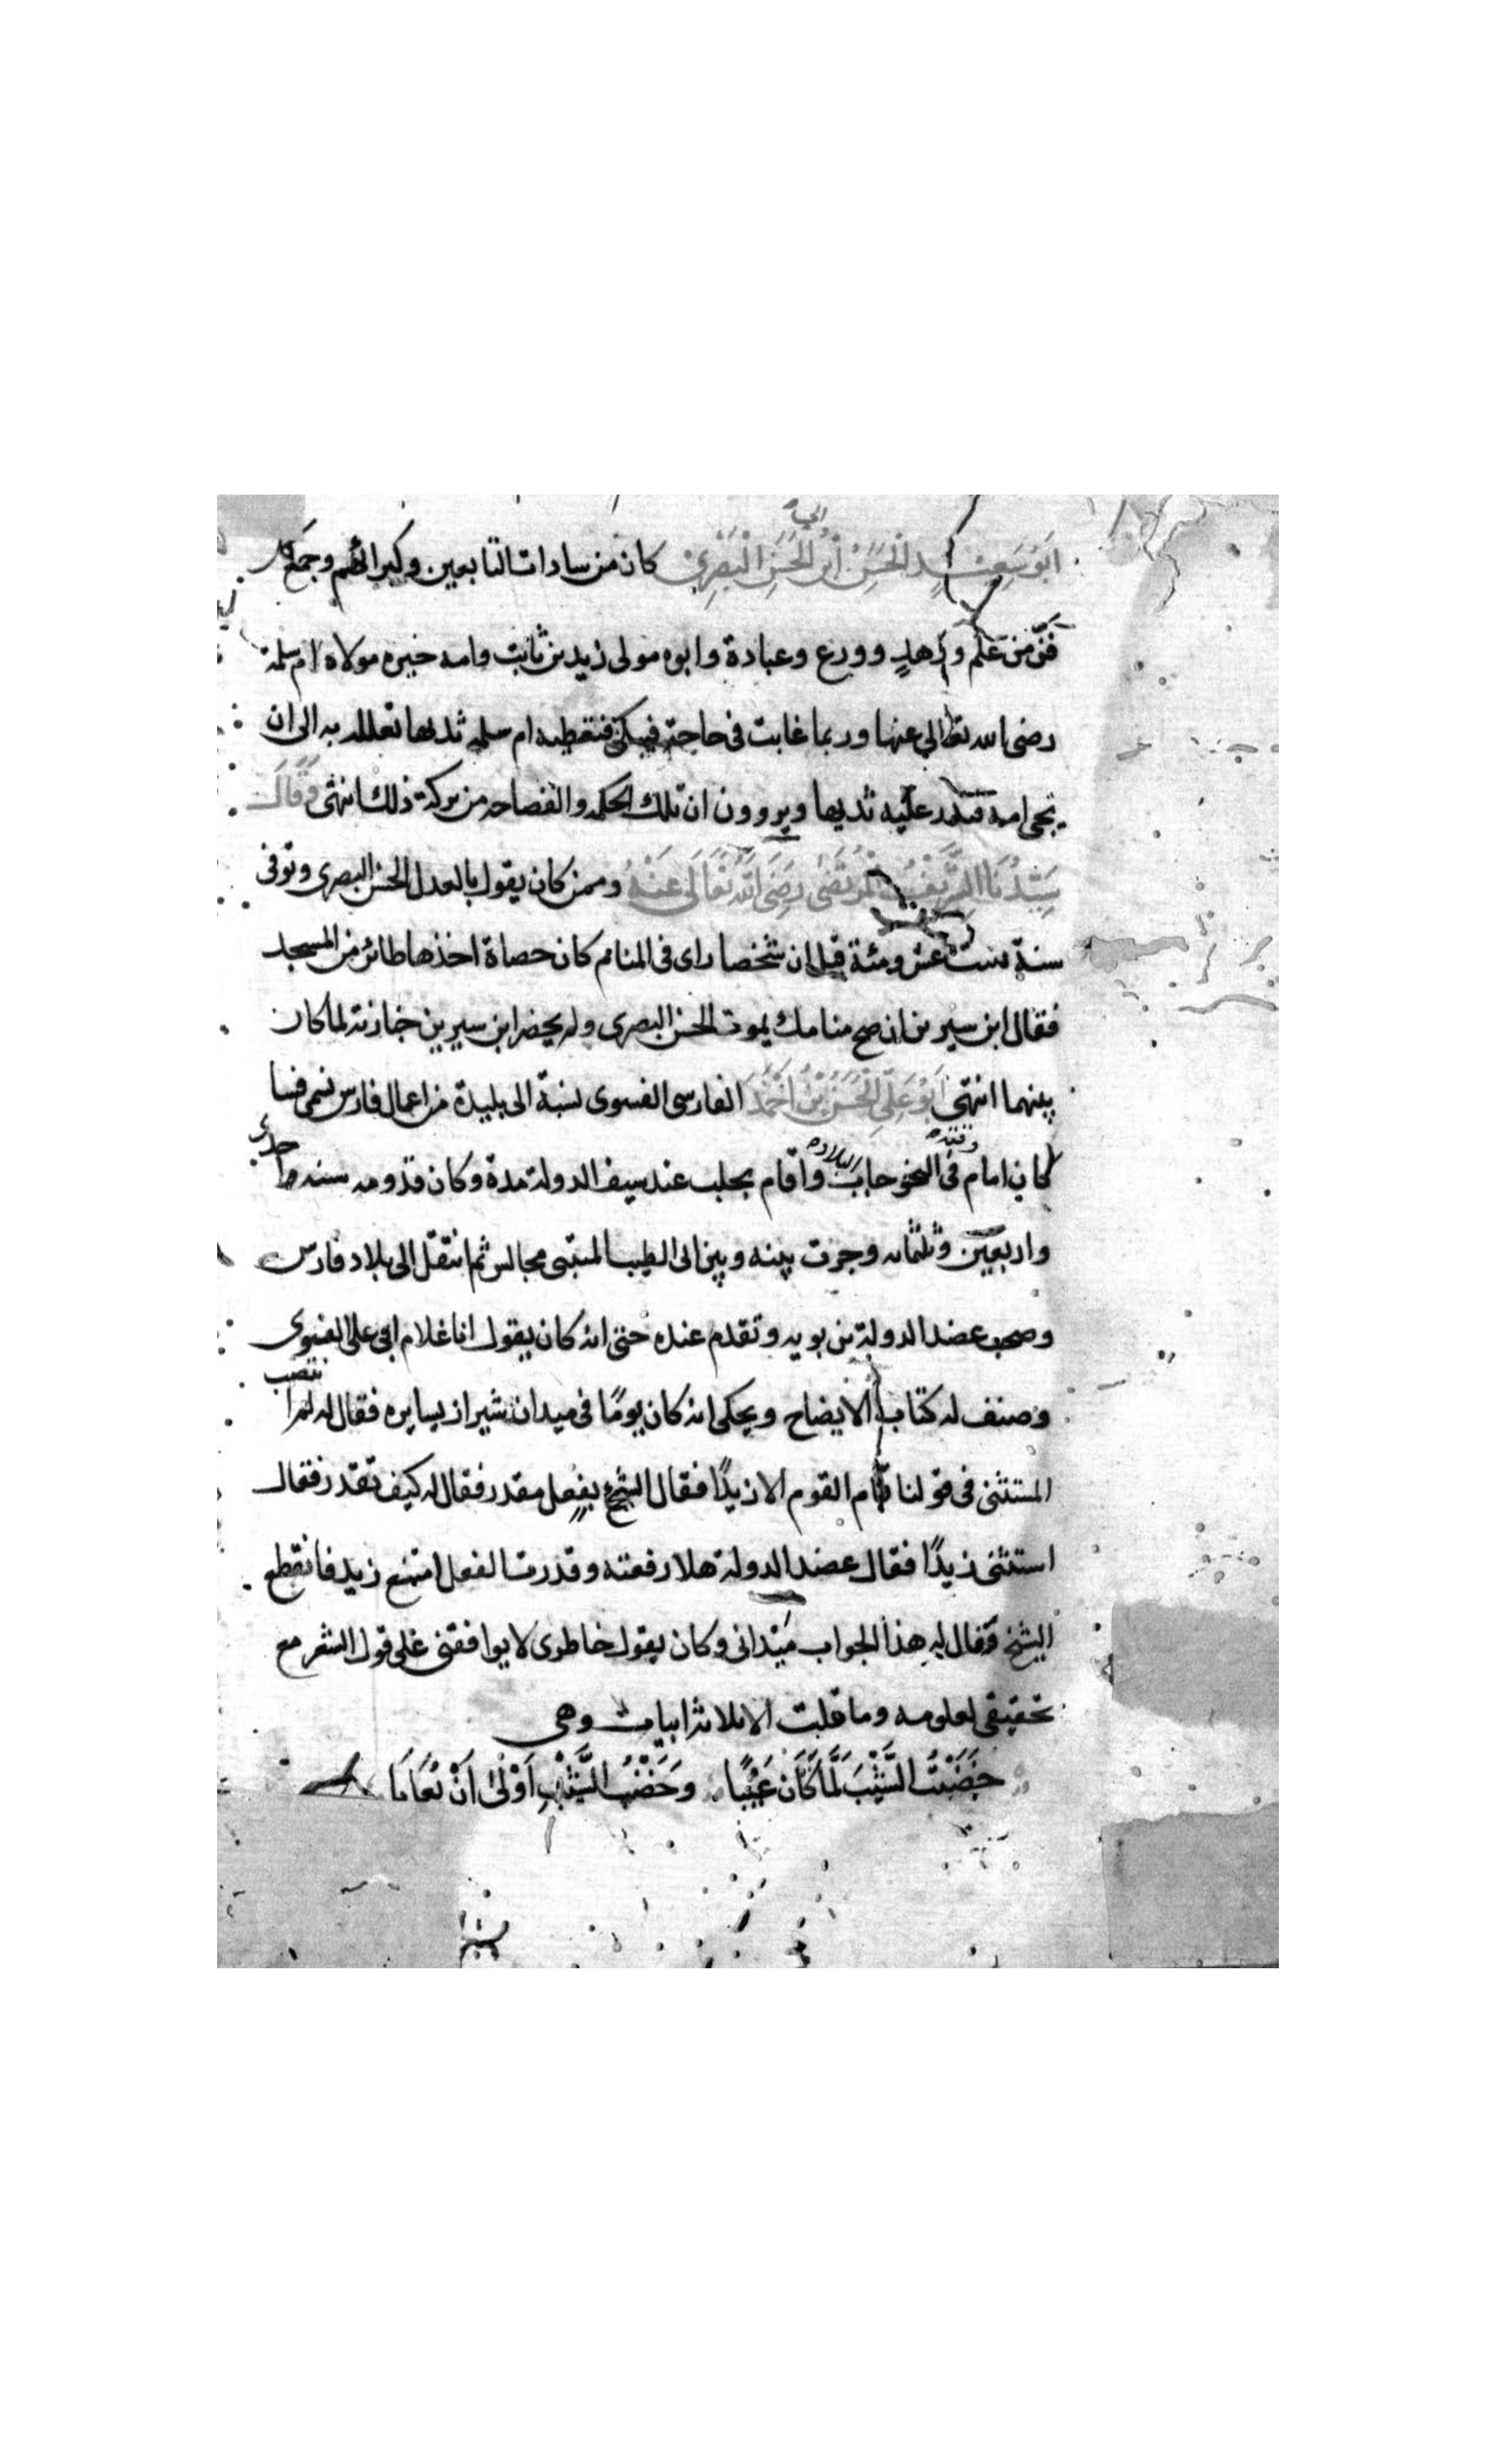 ابو سعيد الحسن ابن ابي الحسن البصري كان من سادات التابعين وكبرائهم وجمع كل
فن من علم وزهد وورع وعبادة وابوه مولى زيد بن ثابت وامه خيره مولاة ام سلمة
رضى الله تعالى عنها وربما غابت فى حاجة فيبكى فتعطيه ام سلمه ثديها تعلله به الى ان
تجى امه فتدر عليه ثديها ويروون ان تلك الحكمه والفصاحه من بركة ذلك انتهى وقال
سيدنا الشريف المرتضى رضى الله تعالى عنه وممن كان يقول بالعدل الحسن البصرى وتوفى
سنة ست عشر ومئة قيل ان شخصا راى فى المنام كان حصاة اخذها طائر من المسجد
فقال ابن سيرين ان صح منامك يموت الحسن البصرى ولم يحضر ابن سيرين جنازته لما كان
بينهما انتهى ابو على الحسن بن احمد الفارسى الفسوى نسبة الى بليدة من اعمال فارس تسمى فسا
كان امام وقته فى النحو جاب البلاد واقام بحلب عند سيف الدولة مدة وكان قدومه سنه احدى
واربعين وثلثمائه وجرت بينه وبين ابى الطيب المتنبى مجالس ثم انتقل الى بلاد فارس
وصحب عضد الدولة بن بويه وتقدم عنده حتى انه كان يقول انا غلام ابى على الفسوى
وصنف له كتاب الايضاح ويحكى انه كان يومًا فى ميدان شيراز يسايره فقال له لم انتصب
المستثنى فى قولنا قام القوم الا زيدًا فقال الشيخ بفعل مقدر فقال له كيف تقدر فقال
استثنى زيدًا فقال عضد الدولة هلا رفعته وقدرت الفعل امتنع زيد فانقطع
الشيخ وقال له هذا الجواب ميدانى وكان يقول خاطرى لا يوافقنى على قول الشعر مع
تحقيقى لعلومه وما قلت الا ثلاثة ابيات وهى
خَضَبْتُ الشَّيْبَ لَمَّا كَانَ عَيْبًا وخَضْبُ الشَّيْبِ اَوْلَى اَنْ يُعَابَا